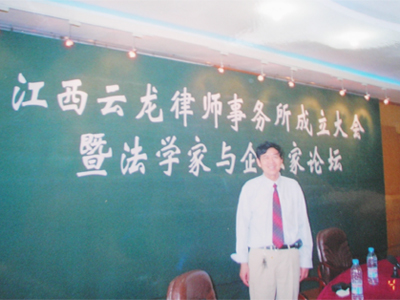 江西云龙律师事务所成立大会
暨法学家与企 家论坛